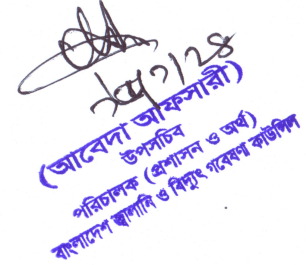 (আবেদা আফসারী)
উপসচিব
পরিচালক (প্রশাসন ও অর্থ)
বাংলাদেশ জ্বালানি ও বিদ্যুৎ গবেষণা কাউন্সিল